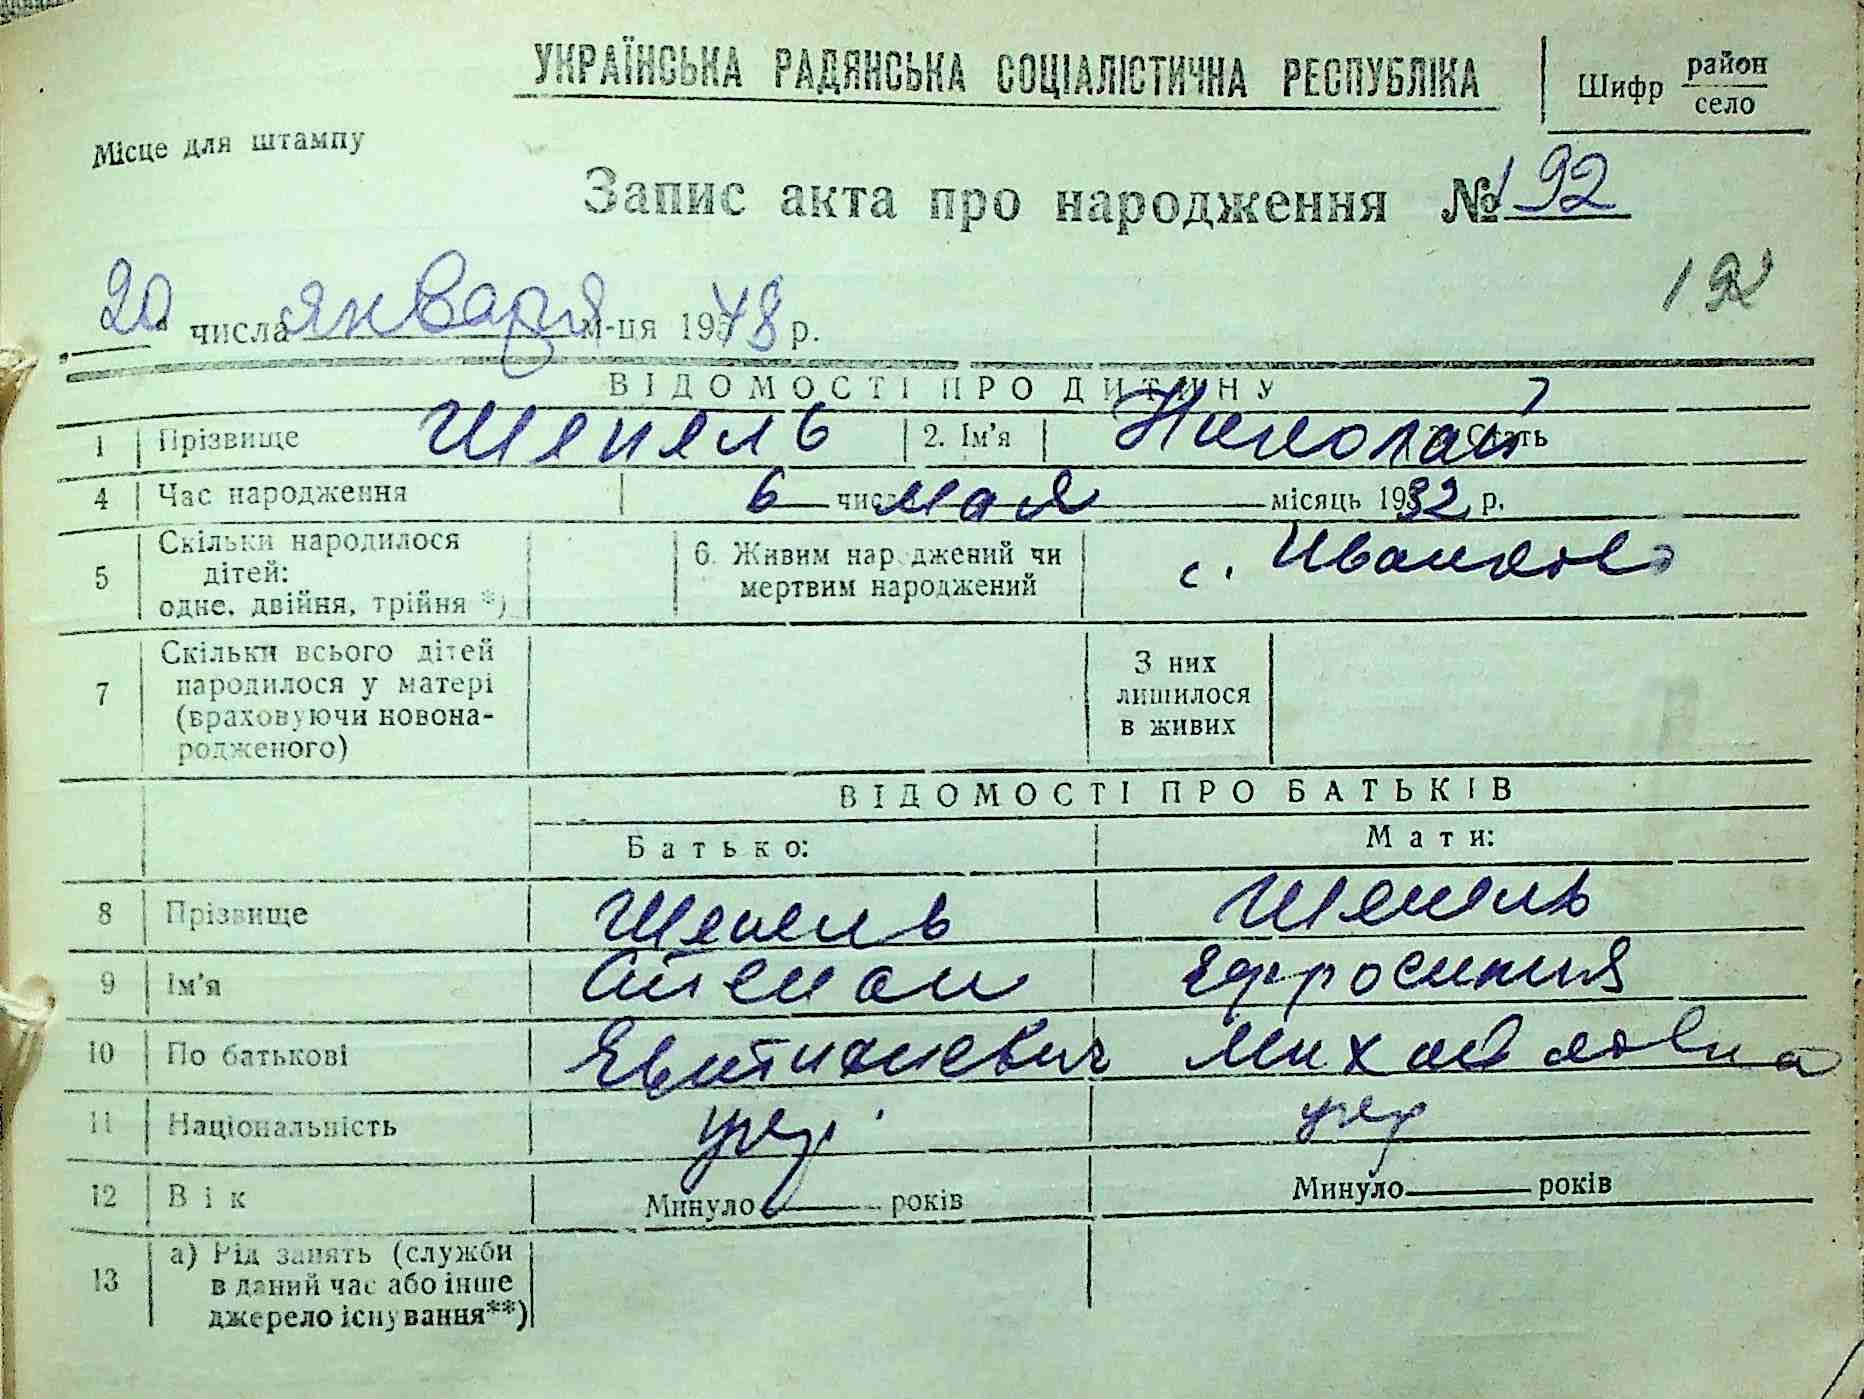 УКРАЇНСЬКА РАДЯНСЬКА СОЦІАЛІСТИЧНА РЕСПУБЛІКА
Шифр район село
Місце для штампу
Запис акта про народження № 192
192
20 числа января м-ця 1948 р.
ВІДОМОСТІ ПРО ДИТИНУ
1 Прізвище Шепель 2. Ім'я Николай Стать
4 Час народження 6 числа мая місяць 1932 р.
5 Скільки народилося дітей: одне, двійня, трійня *)
6. Живим народжений чи мертвим народжений
с. Иванково
7 Скільки всього дітей народилося у матері (враховуючи новонародженого)
З них лишилося в живих
ВІДОМОСТІ ПРО БАТЬКІВ
Батько: Мати:
8 Прізвище Шепель Шепель
9 Ім'я Степан Ефросиния
10 По батькові Евтихиевич Михайловна
11 Національність укр. укр
12 Вік Минуло років Минуло років
13 а) Рід занять (служби в даний час або інше джерело існування**)